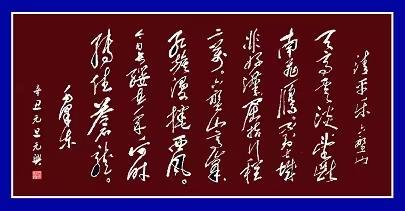 清平乐 六盘山
天高云淡望断
南飞雁不到长城
非好汉屈指行程
二万六盘山上高峰
红旗漫卷西风
今日长缨在手何时
缚住苍龙
毛泽东
辛丑元旦元兴